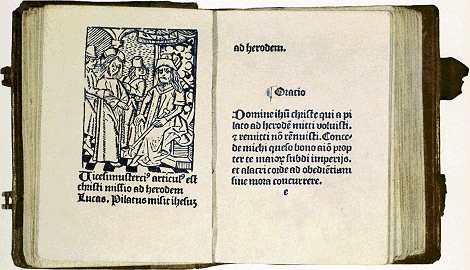 Uicesimusterci⁹ articul⁹ est
christi missio ad herodem
Lucas. Pilatus misit ihesuz
ad herodem.
¶ Oratio
Domine ihū christe qui a pi
lato ad herodē mitti voluisti.
et remitti nō rēnuisti. Conce
de michi queso bono aiō prop
ter te maior subdi imperijs.
et alacri corde ad obediētiam
sine mora concurrere.
e